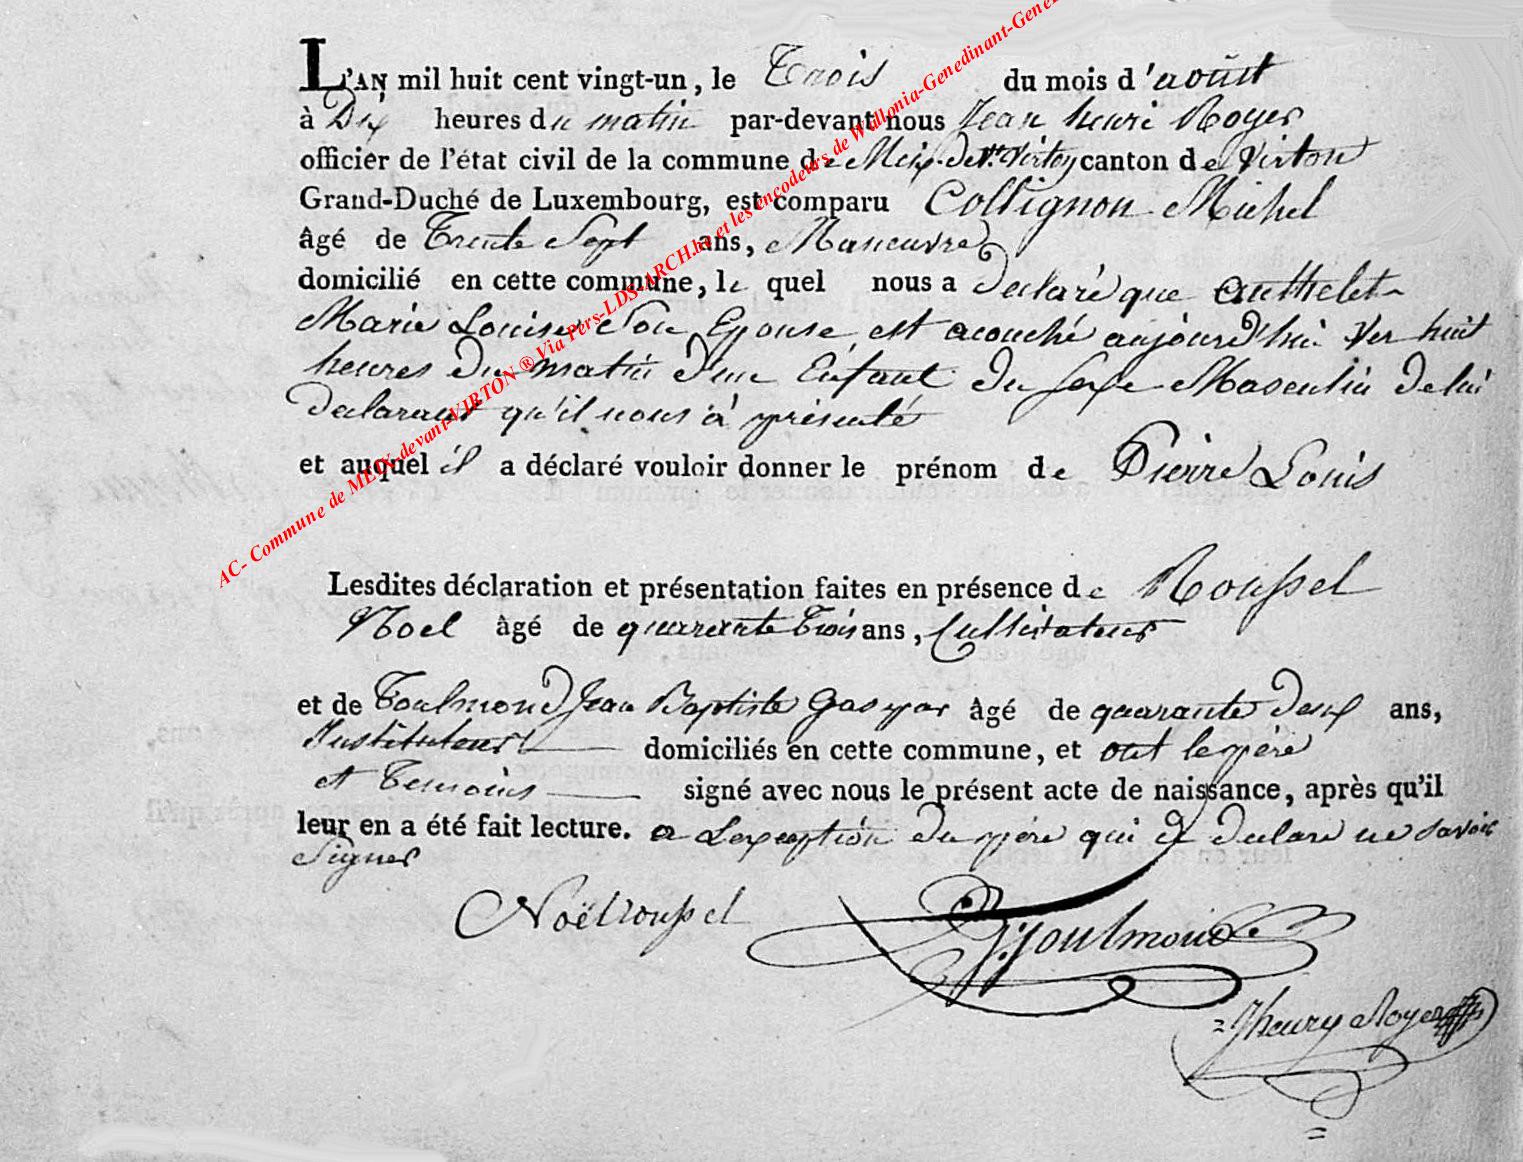 L'AN mil huit cent vingt-un, le Trois du mois d'août
à Dix heures du matin par-devant nous Jean henri Royer
officier de l'état civil de la commune de Meix devt Virton canton de Virton
Grand-Duché de Luxembourg, est comparu Collignon Michel
âgé de Trente Sept ans, Maneuvre
domicilié en cette commune, le quel nous a declaré que authelet
Marie Louise Son Epouse est acouché aujourd'hui ver huit
heures du matin d'un Enfant du sexe Masculin de lui
declarant qu'il nous à présenté
et auquel il a déclaré vouloir donner le prénom de Pierre Louis
Lesdites déclaration et présentation faites en présence de Roussel
Noel âgé de quarante Trois ans, Cultivateur
et de Toulmond Jean Baptiste Gaspar âgé de quarante deux ans,
Instituteur domiciliés en cette commune, et ont le père
et Temoins signé avec nous le présent acte de naissance, après qu'il
leur en a été fait lecture. a Lexception du père qui a declaré ne savoir
Signer
Noël roussel
Toulmond
Jhenry Royer
AC- Commune de MEIX-devant-VIRTON ® Via Pers-LDS-ARCH.be et les encodeurs de Wallonia-Genedinant-Gene